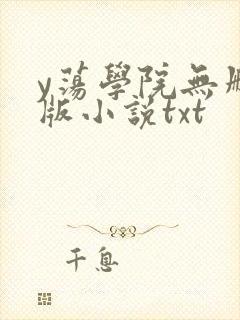 y蕩學院無刪
版小説txt
千息